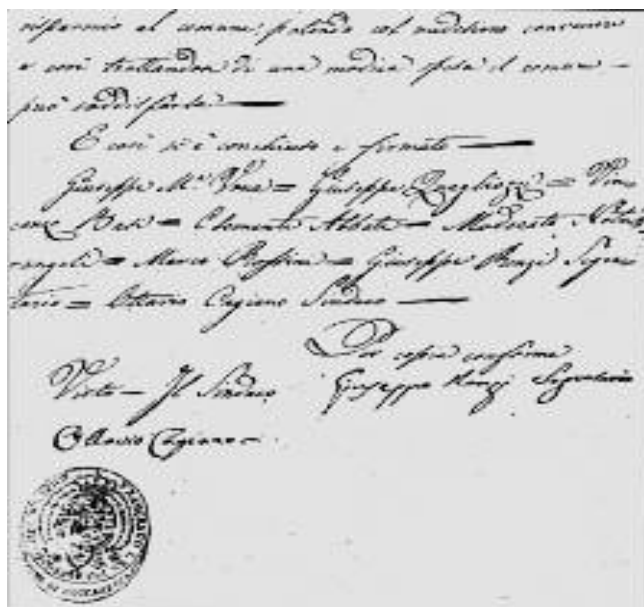 risparmio al comune potendo col medesimo convenire
e così trattandosi di una modica spesa il comune
può soddisfarla —
E così si è conchiuso e firmato —
Giuseppe M.ª = Giuseppe Quagliozzi = Vin
= Clemente Abbate = Moderato
rangeli = Marco Ruffini = Giuseppe Ronzi Segre
tario = Ottavio Cagiano Sindaco —
Per copia conforme
Visto = Il Sindaco
Giuseppe Ronzi Segretario
Ottavio Cagiano